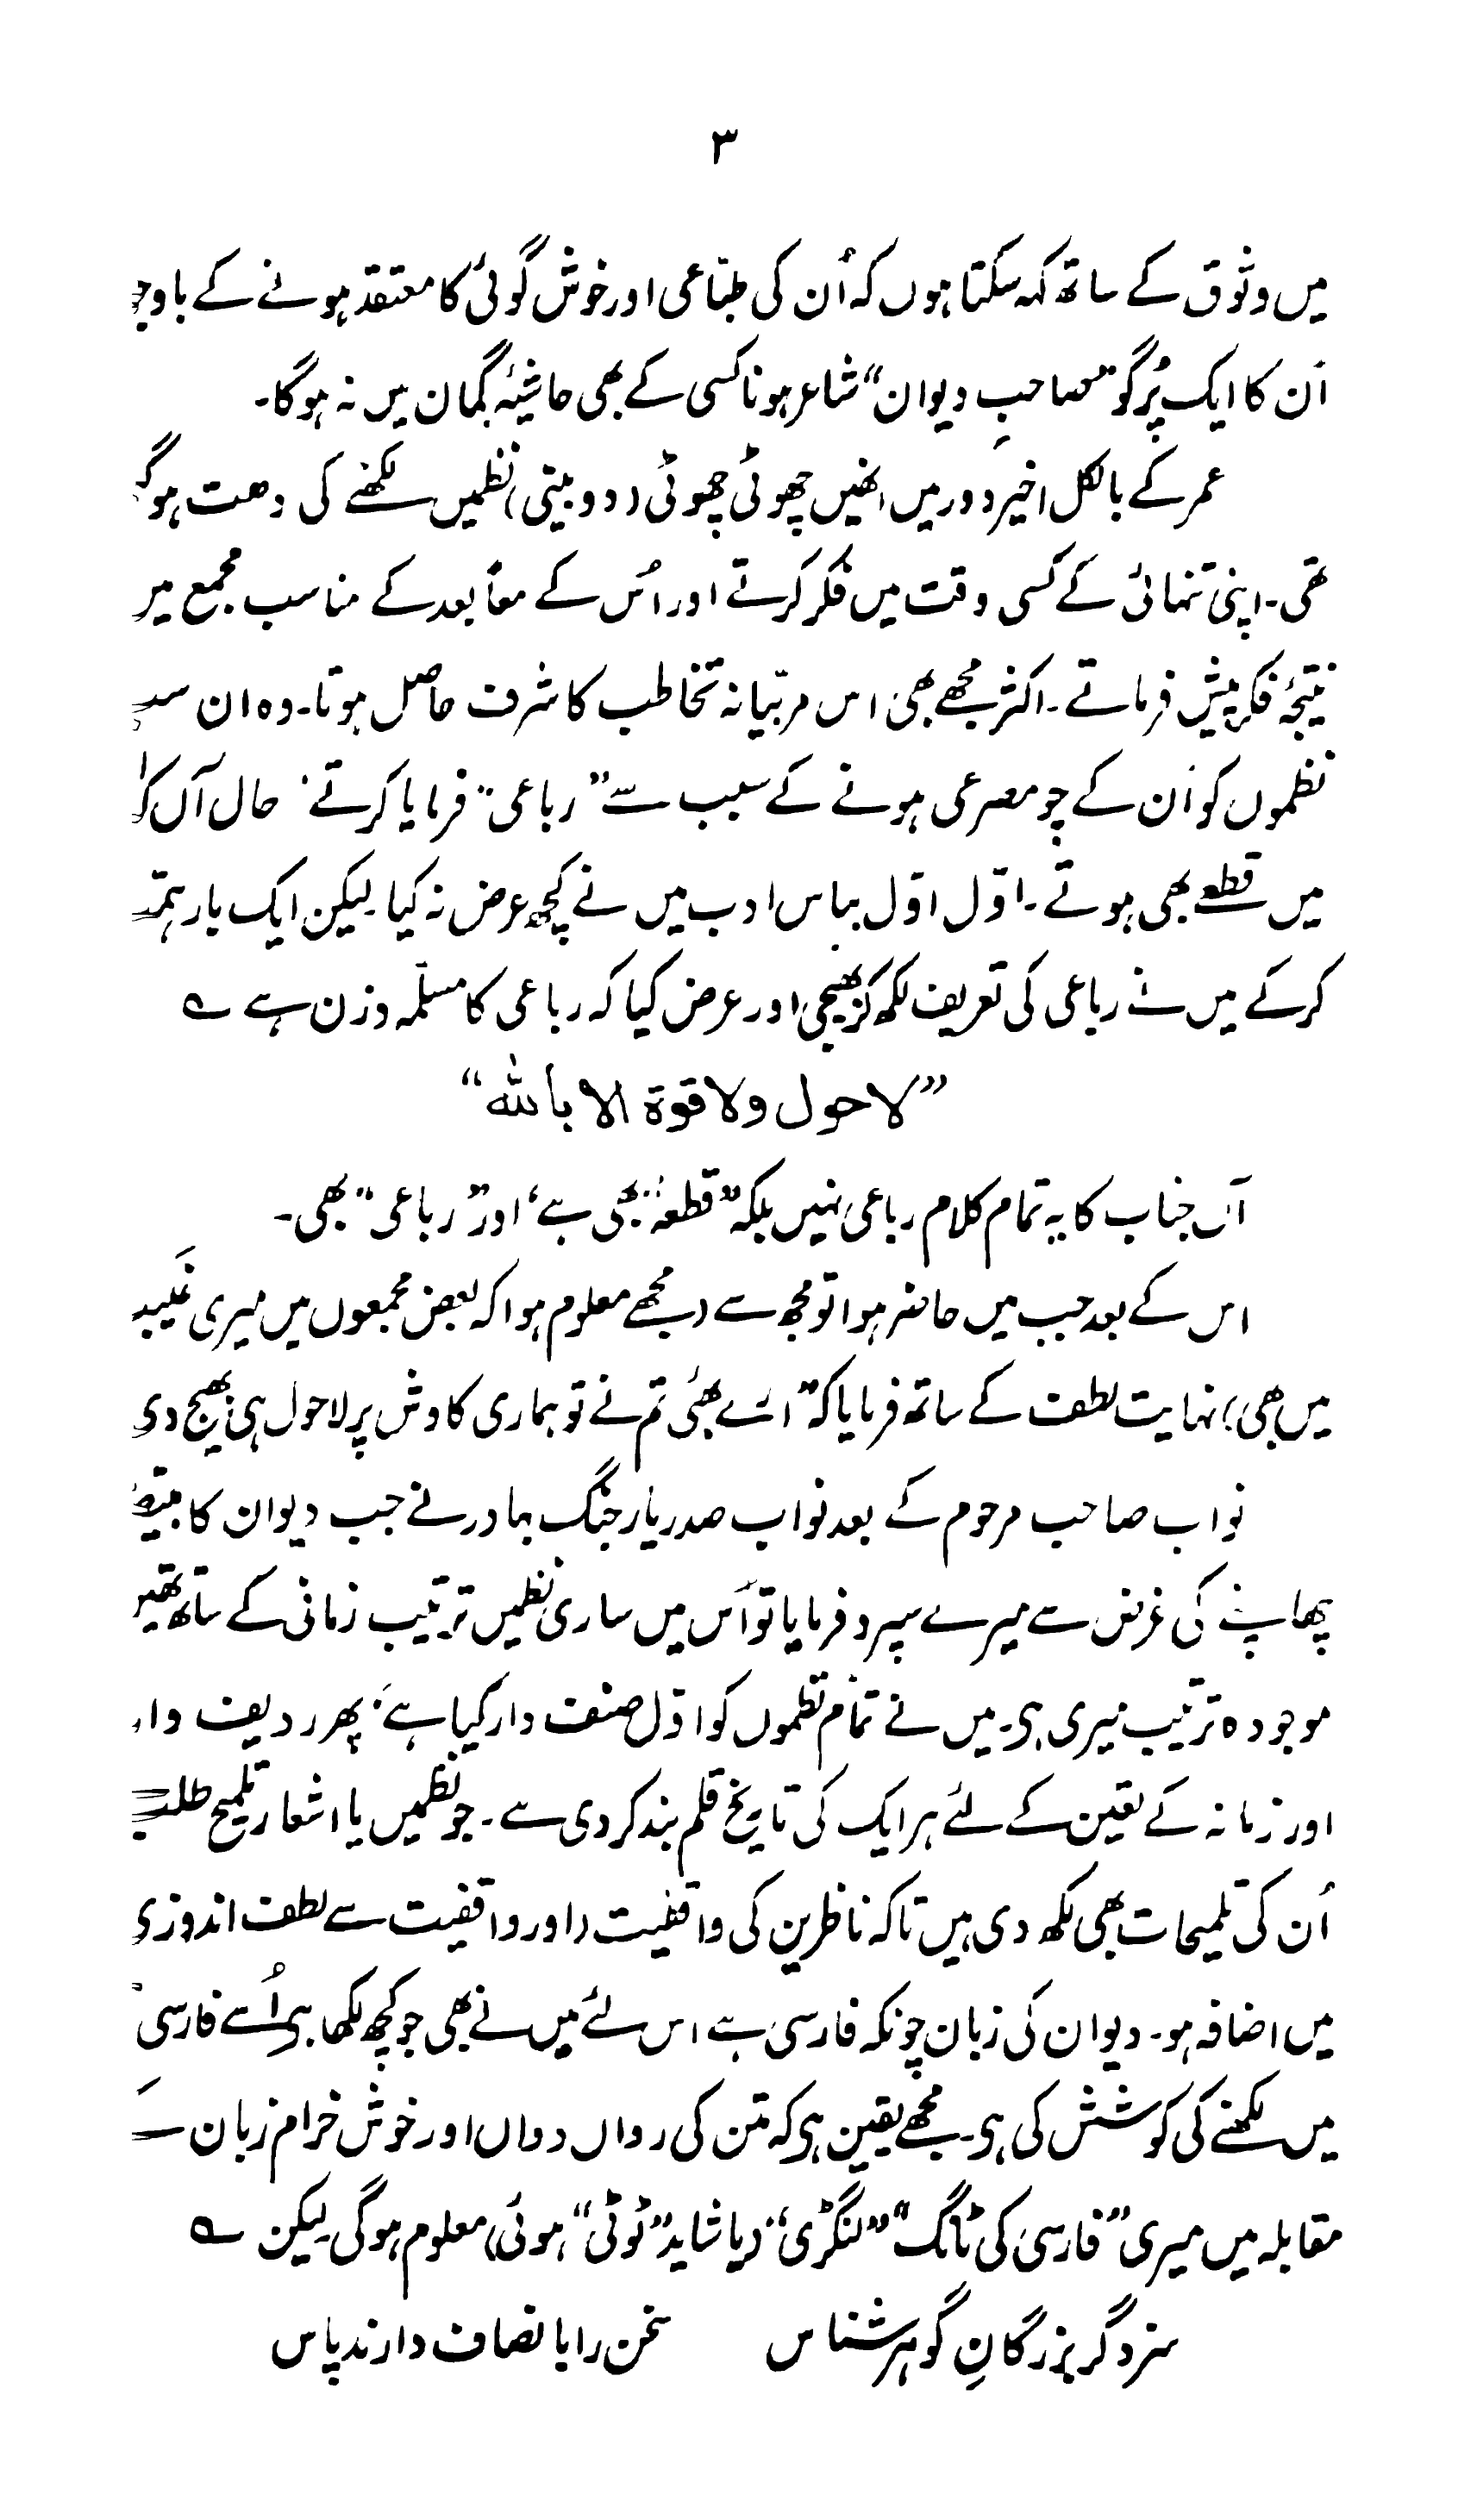 ۳
میں وثوق کے ساتھ کہہ سکتا ہوں کہ اُن کی طبّاعی اور خوش گوئی کا معتقد ہونے کے باوجو
اُن کا ایک پُرگو "صاحبِ دیوان" شاعر ہونا کسی کے بھی حاشیۂ گمان میں نہ ہوگا۔
عمر کے بالکل اخیر دور میں انھیں چھوٹی چھوٹی (دو بیتی) نظمیں لکھنے کی دھت ہوگ
تھی۔ اپنی تنہائی کے کسی وقت میں فکر کرتے اور اُس کے معاً بعد کے مناسب مجمع میں
نتیجۂ فکر پیش فرماتے۔ اکثر مجھے بھی اس مربّیانہ تخاطب کا شرف حاصل ہوتا۔ وہ ان سب
نظموں کو اُن کے چو مصرعی ہونے کے سبب سے "رباعی" فرمایا کرتے، حال آں کہ ا
میں قطعے بھی ہوتے۔ اوّل اوّل بپاس ادب میں نے کچھ عرض نہ کیا۔ لیکن ایک بار ہمّت
کر کے میں نے رباعی کی تعریف لکھ کر بھیجی اور عرض کیا کہ رباعی کا مسلّمہ وزن ہے ؎
"لاحول ولا قوۃ الا باللہ"
آں جناب کا یہ تمام کلام رباعی نہیں بلکہ "قطعہ" بھی ہے، اور "رباعی" بھی۔
اس کے بعد جب میں حاضر ہوا تو مجھ سے (مجھے معلوم ہوا کہ بعض مجمعوں میں میری غَیب
میں بھی) نہایت لطف کے ساتھ فرمایا کہ "اے بھئی تم نے تو ہماری کاوش پر لاحول ہی بھیج دی
نواب صاحب مرحوم کے بعد نواب صدر یار جنگ بہادر نے جب دیوان کا مبیّضہ
چھاپنے کی غرض سے میرے سپرد فرمایا تو اُس میں ساری نظمیں ترتیب زمانی کے ساتھ تھیں
موجودہ ترتیب میری ہی۔ میں نے تمام نظموں کو اوّل صنف وار کیا ہے، پھر ردیف وار
اور زمانہ کے تعین کے لئے ہر ایک کی تاریخ قلم بند کر دی ہے۔ جو نظمیں یا اشعار تلمیح طلب
اُن کی تلمیحات بھی لکھ دی ہیں تاکہ ناظرین کی واقفیت (اور واقفیت سے لطف اندوزی
میں اضافہ ہو۔ دیوان کی زبان چونکہ فارسی ہے اس لئے میں نے بھی جو کچھ لکھا ہی اُسے فارسی
میں لکھنے کی کوشش کی ہی۔ مجھے یقین ہی کہ متن کی رواں دواں اور خوش خرام زبان کے
مقابلہ میں میری "فارسی کی ٹانگ" "لنگڑی" (یا شاید "ٹوٹی" ہوئی) معلوم ہوگی۔ لیکن ؎
سزد گر بزرگانِ گوہر شناس سخن را بانصاف دارند پاس